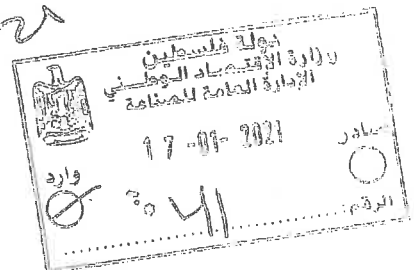 دولة فلسطين
وزارة الاقتصاد الوطني
الإدارة العامة للصناعة
17-01-2021
صادر
وارد
الرقم: